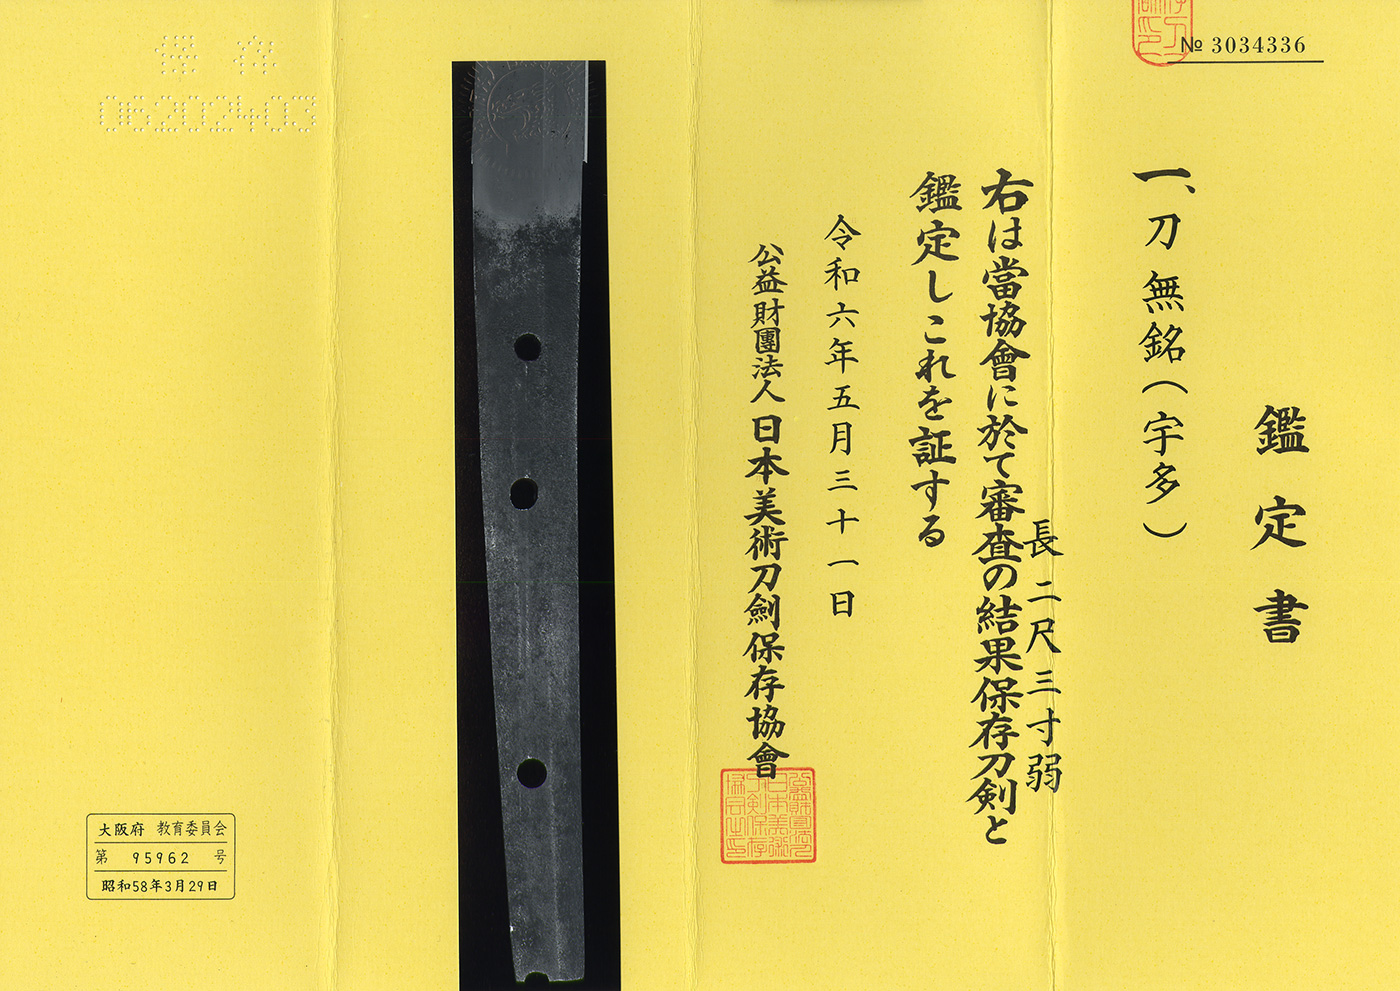 № 3034336
鑑定書
一、刀 無銘(宇多)
長二尺三寸弱
右は當協會に於て審査の結果保存刀剣と
鑑定しこれを証する
令和六年五月三十一日
公益財團法人 日本美術刀劍保存協會
保存
06202403
大阪府 教育委員会
第 95962 号
昭和58年3月29日